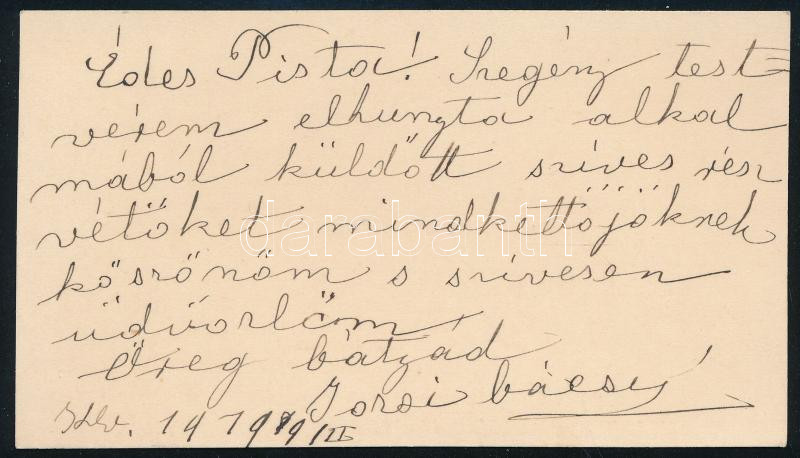 Édes Pista! Szegény test
vérem elhunyta alkal
mából küldött szíves rész
vétőket mindkettőjöknek
köszönöm s szívesen
üdvözlöm
Öreg bátyád
bácsi
1919 9/II
darabanth